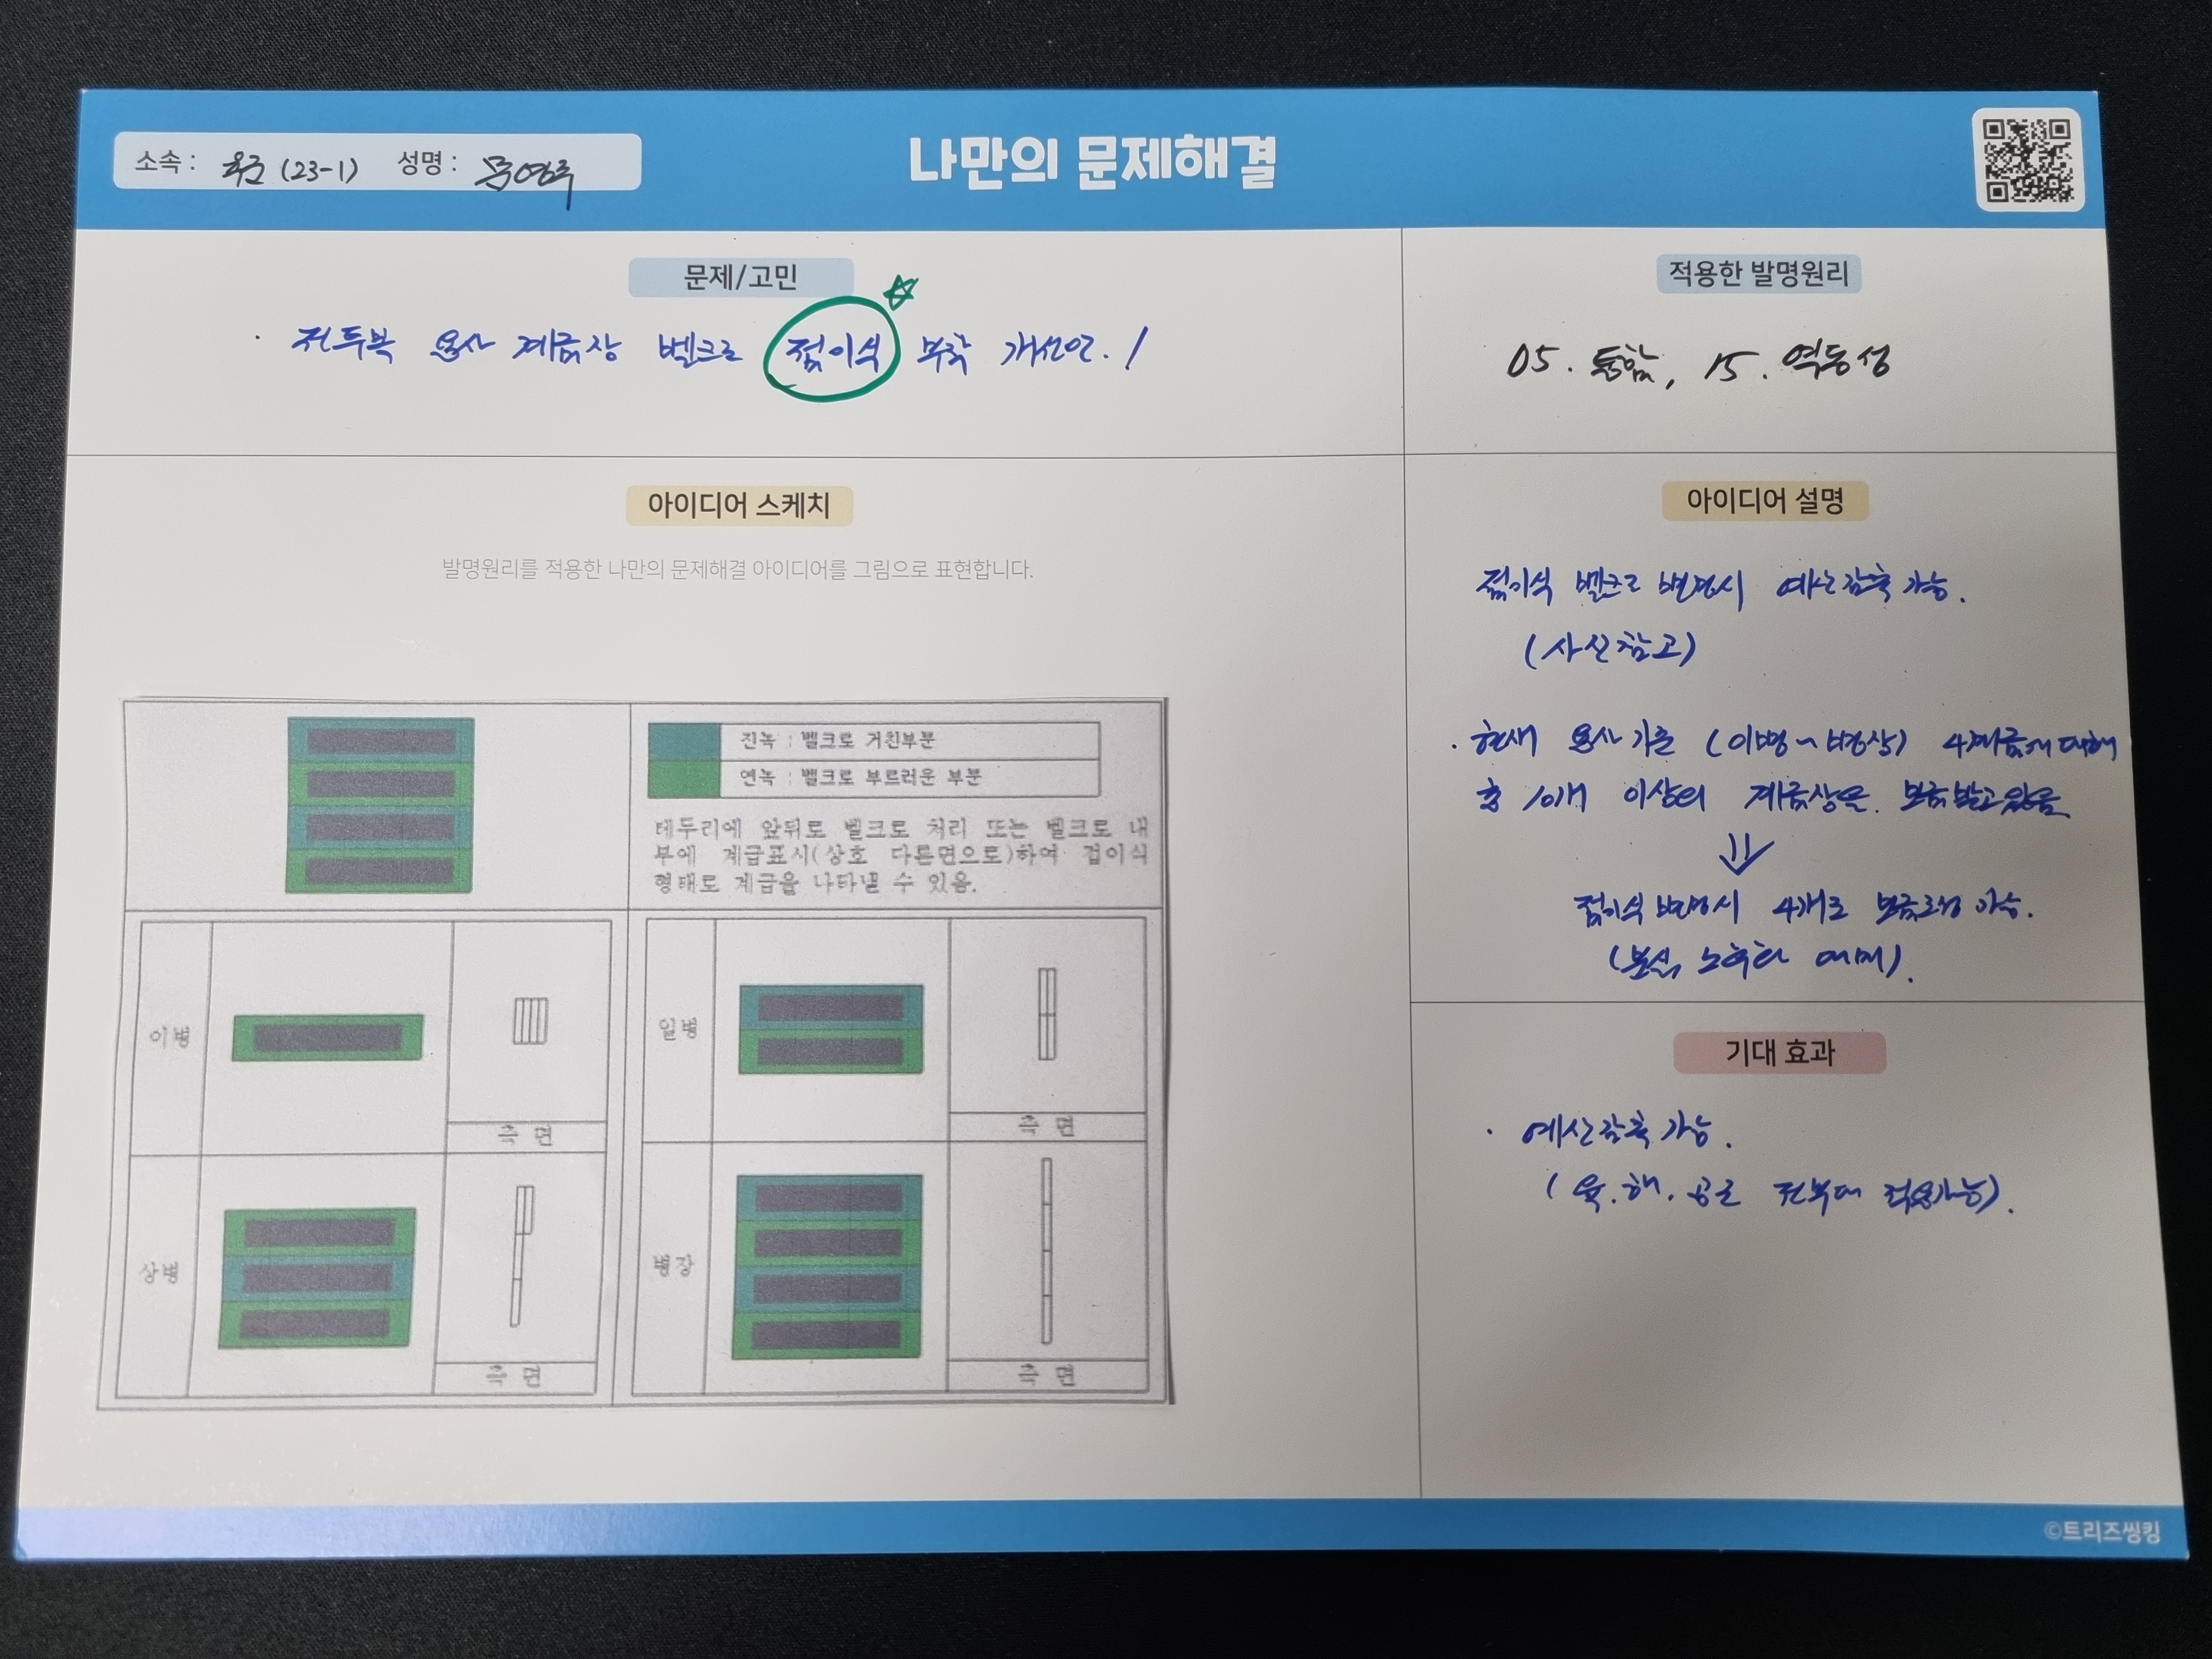 소속 : 육군 (23-1) 성명 :
나만의 문제해결
문제/고민
· 전투복 용사 계급장 벨크로 접이식 부착 개선안. !
적용한 발명원리
05. 통합, 15. 역동성
아이디어 스케치
발명원리를 적용한 나만의 문제해결 아이디어를 그림으로 표현합니다.
진녹 : 벨크로 거친부분
연녹 : 벨크로 부드러운 부분
테두리에 앞뒤로 벨크로 처리 또는 벨크로 내
부에 계급표시(상호 다른면으로)하여 접이식
형태로 계급을 나타낼 수 있음.
이병
측 면
일병
측 면
상병
측 면
병장
측 면
아이디어 설명
접이식 벨크로 변경시 예산감축 가능.
(사진참고)
· 현재 용사 기준 (이병~병장) 4계급에 대해
총 10개 이상의 계급장을 보급받고 있음
접이식 변경시 4개로 보급조정 가능.
(분실, 노후화 예비).
기대 효과
· 예산감축 가능.
(육.해.공군 전부대 적용가능).
©트리즈씽킹